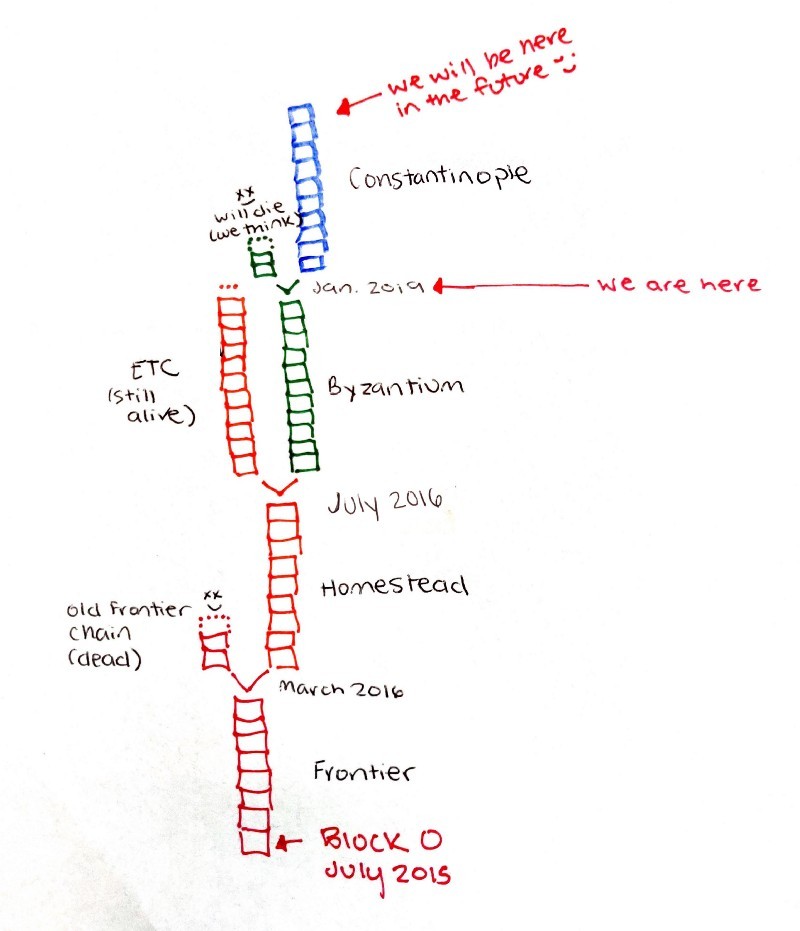 we will be here
in the future
Constantinople
xx
will die
(we think)
Jan. 2019
we are here
ETC
(still
alive)
Byzantium
July 2016
Homestead
xx
old frontier
chain
(dead)
March 2016
Frontier
Block 0
July 2015